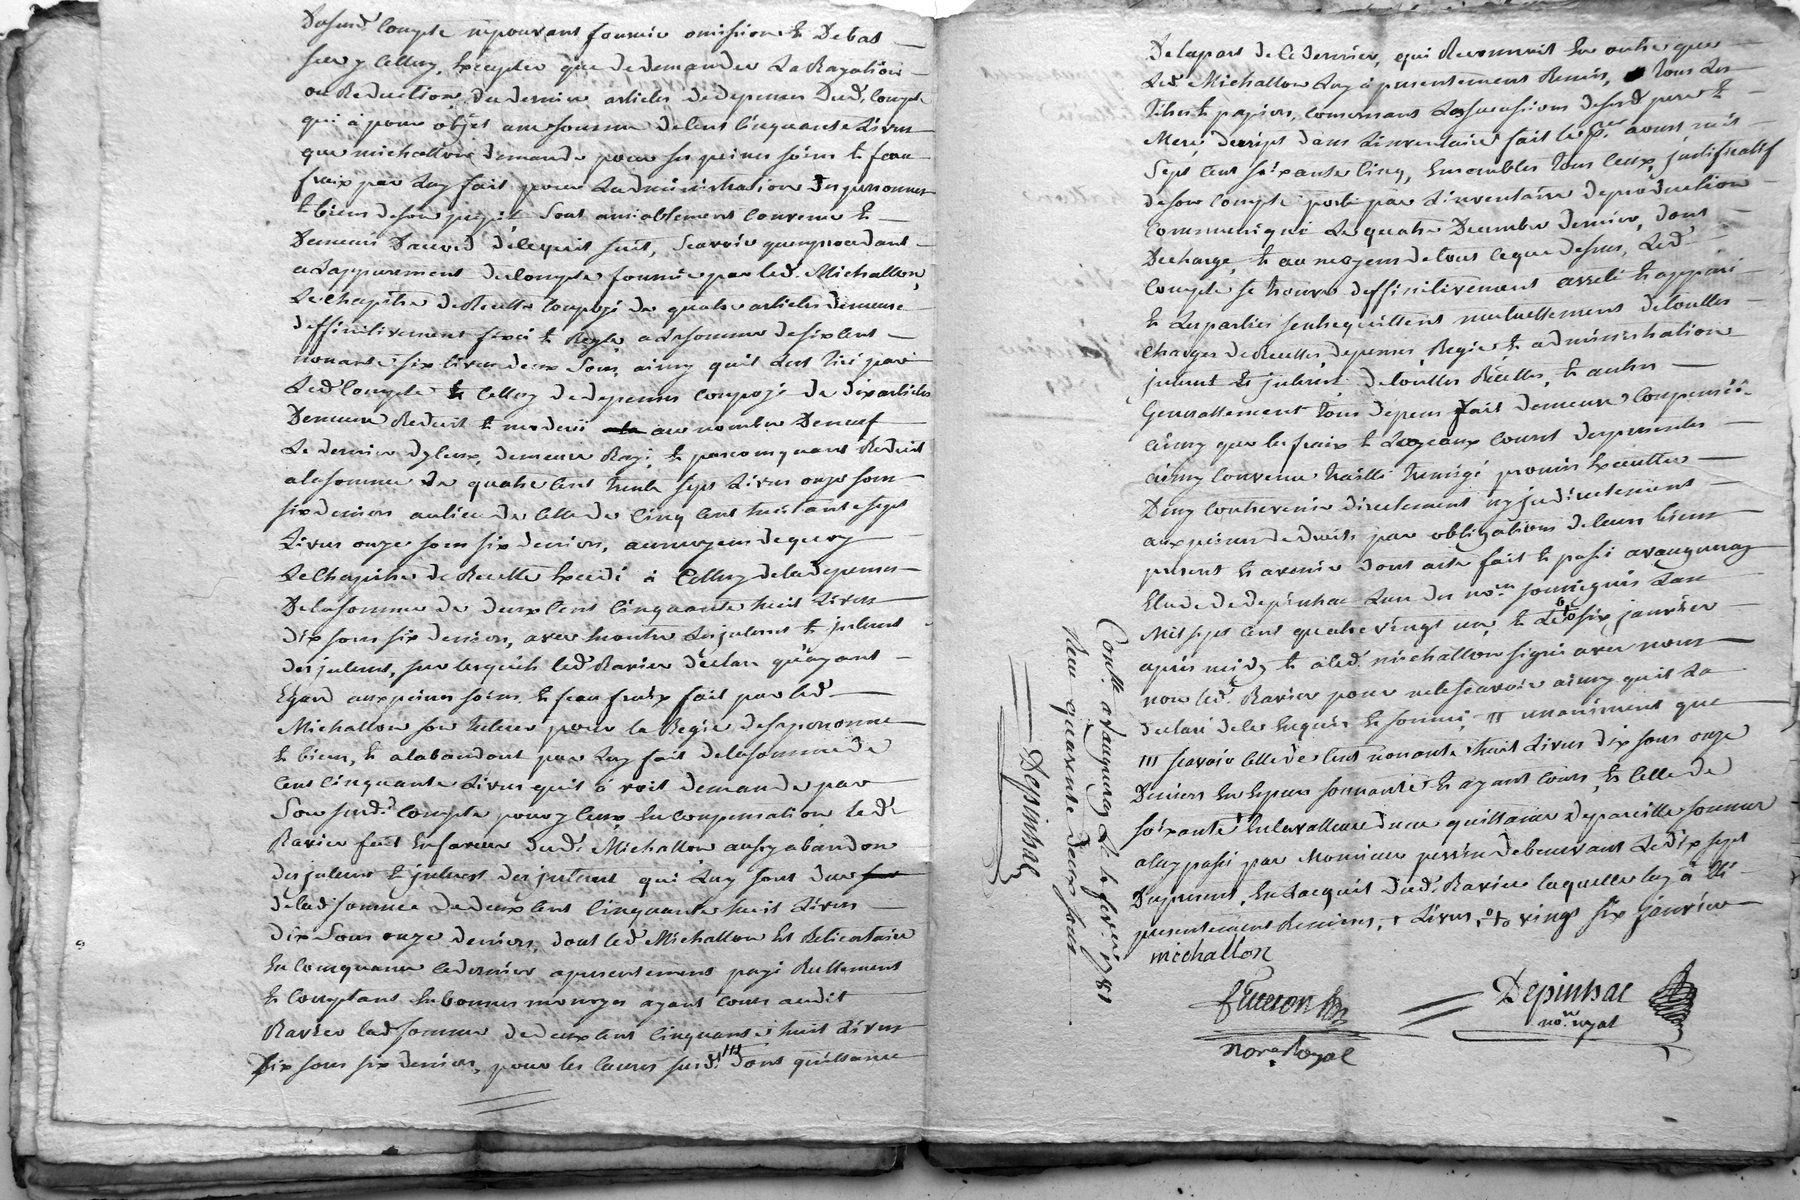 Dususd. Compte ne pouvant fournir omission Et Debas
sur y Celluy, Excepter que de demander La Rayation
ou Reduction du dernier article de depenses Dud. Compte
qui à pour objet une somme de Cent Cinquante Livres
que michallon demande pour ses peines soins Et faux
fraix par Luy fait pour Ladministration des personnes
Et biens de son pupil Sont amiablement Convenu Et
Demeuré Daccord de Ce quit suit, Scavoir qu'en procedant
a Lappurement du Compte fournie par led. Michallon,
Le Chapitre de Recette Composé de quatre articles demeure
deffinitivement fixé Et Reglé a La somme de six Cent
nonante six Livres deux Sous, ainsy quil Lest tiré par
Led. Compte Et Celluy de depenses Composé de dix articles
Demeure Reduit Et moderé au nombre De neuf
Le dernier dyCeux, demeure Rayé, Et par Consequant Reduit
a la somme de quatre Cent trente sept Livres onze sous
six deniers au lieu de Celle de Cinq Cent huitante sept
Livres onze sous six deniers, au moyen de quoy
Le Chapitre de Recette Excede à Celluy de la depense
De la somme de deux Cent Cinquante huit Livres
dix sous six deniers, avec montre Les interet Et interet
des interet, sur lesquels led. Ravier declare qu'ayant
Egard aux peines soins Et faux fraix fait par led.
Michallon son tuteur pour la Regie de sa personne
Et biens, Et a labandont par Luy fait de la somme de
Cent Cinquante Livres quil à voit demande par
Son susd. Compte pour y Ceux En Compensation le d.
Ravier fait En faveur dud. Michallon aussy abandon
des interet Et interest des interest qui Luy sont due
de lad. somme de deux Cent Cinquante huit Livres
dix Sous onze deniers, dont led. Michallon Est Relicataire
En Consequance Ce dernier a presentement payé Reellement
Et Comptant En bonnes monoyes ayant Cours audit
Ravier lad. somme de deux Cent Cinquante huit Livres
Dix sous six deniers, pour les Causes susd. /// dont quittance
De la part de Ce dernier, qui Reconnoit En outre que
Led. Michallon Luy à presentement Remis, tous Les
Titres Et papiers, Concernant Les successions de sesd. pere Et
Mere, decript dans Linventaire fait le aoust mil
Sept Cent soixante Cinq, Ensembles tous Ceux, justificatif
de son Compte porté par Linventaire de production
Communiqué Le quatre Decembre dernier, dont
Decharge, Et au moyens de tout Ce que dessus, Led.
Compte se trouve deffinitivement arreté Et appuré
Et Les parties sentrequittent mutuellement de touttes
Charges de Recettes, depenses, Regie Et administration
interet Et interest de touttes Recettes, Et autres
Generallement tous depens fait demeure Compensés
ainsy que les fraix Et Loyeaux Couts des presentes
ainsy Convenu traitté transigé promis Executter
Dény Contrevenir directement ny indirectement
aux peines de droits par obligations de leurs biens
present Et avenir dont acte fait Et passé a vaugneray
Etude de depinhac Lun des nores. soussignés Lan
Mil sept Cent quatre vingt un, Et Le six janvier
après midy Et a led. michallon signé avec nous
non led. Ravier pour ne le scavoir ainsy quil La
declaré de ce Enquis Et sommé, /// unaniment que
/// scavoir Celle de Cent nonante huit Livres dix sous onze
Deniers En Espece sonnante Et ayant Cours, Et Celle de
soixante En la vallleur d'une quittance de pareille somme
a luy passé par Monsieur perrin debenevent Le dix sept
Du present, En Lacquit dud. Ravier laquelle luy à Eté
presentement Remises, + Livres, o+o vingt six janvier
michallon
Depinhac
nore. Royal
nore. royal
Con.lle. a Vaugneray Le 6. fevr. 1781
Reçu quarente deux sous
Depinhac